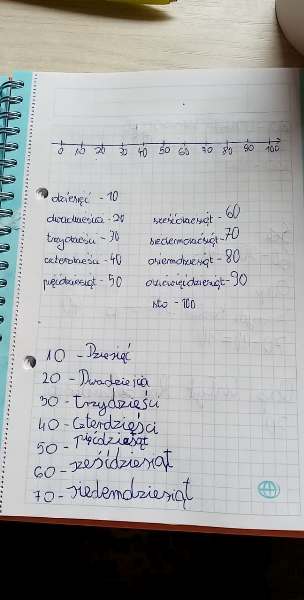 0 10 20 30 40 50 60 70 80 90 100
dziesięć - 10
dwadzieścia - 20 sześćdziesiąt - 60
trzydzieści - 30 siedemdziesiąt - 70
czterdzieści - 40 osiemdziesiąt - 80
pięćdziesiąt - 50 dziewięćdziesiąt - 90
sto - 100
10 - Dziesięć
20 - Dwadzieścia
30 - trzydzięści
40 - Czterdzięści
50 - Pięćdziesąt
60 - sześidziesiąt
70 - siedemdziesiąt